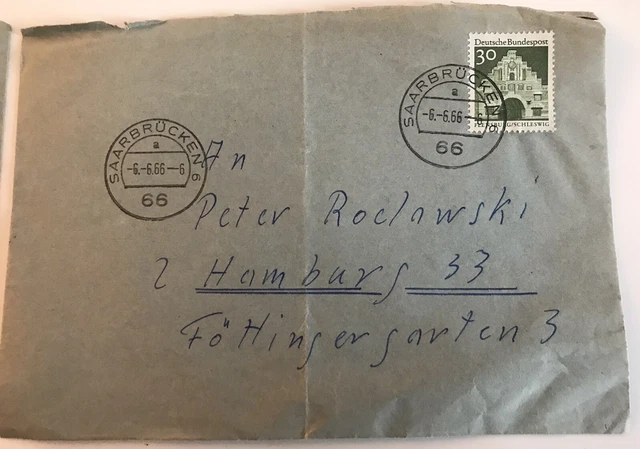 Deutsche Bundespost
30
FLENSBURG/SCHLESWIG
SAARBRÜCKEN 6
a
-6.-6.66--6
66
SAARBRÜCKEN 6
a
-6.-6.66--6
66
An
Peter Roclawski
2 Hamburg 33
Föttingergarten 3